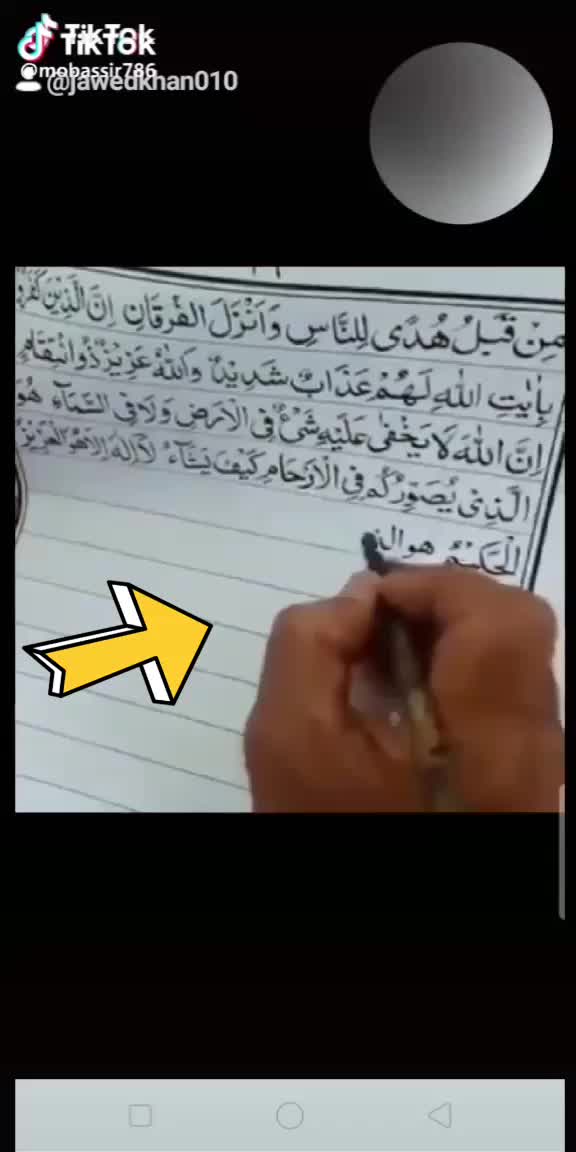 TikTok
@mobassir786
@jawedkhan010
مِنْ قَبْلُ هُدًى لِلنَّاسِ وَاَنْزَلَ الْفُرْقَانِ اِنَّ الَّذِيْنَ كَفَرُوْا
بِاٰيٰتِ اللّٰهِ لَهُمْ عَذَابٌ شَدِيْدٌ وَاللّٰهُ عَزِيْزٌ ذُوانْتِقَامٍ
اِنَّ اللّٰهَ لَا يَخْفٰى عَلَيْهِ شَىْءٌ فِى الْاَرْضِ وَلَا فِى السَّمَآءِ هُوَ
الَّذِىْ يُصَوِّرُكُمْ فِى الْاَرْحَامِ كَيْفَ يَشَآءُ لَآ اِلٰهَ اِلَّا هُوَ الْعَزِيْزُ
الْحَكِيْمُ هو الذ